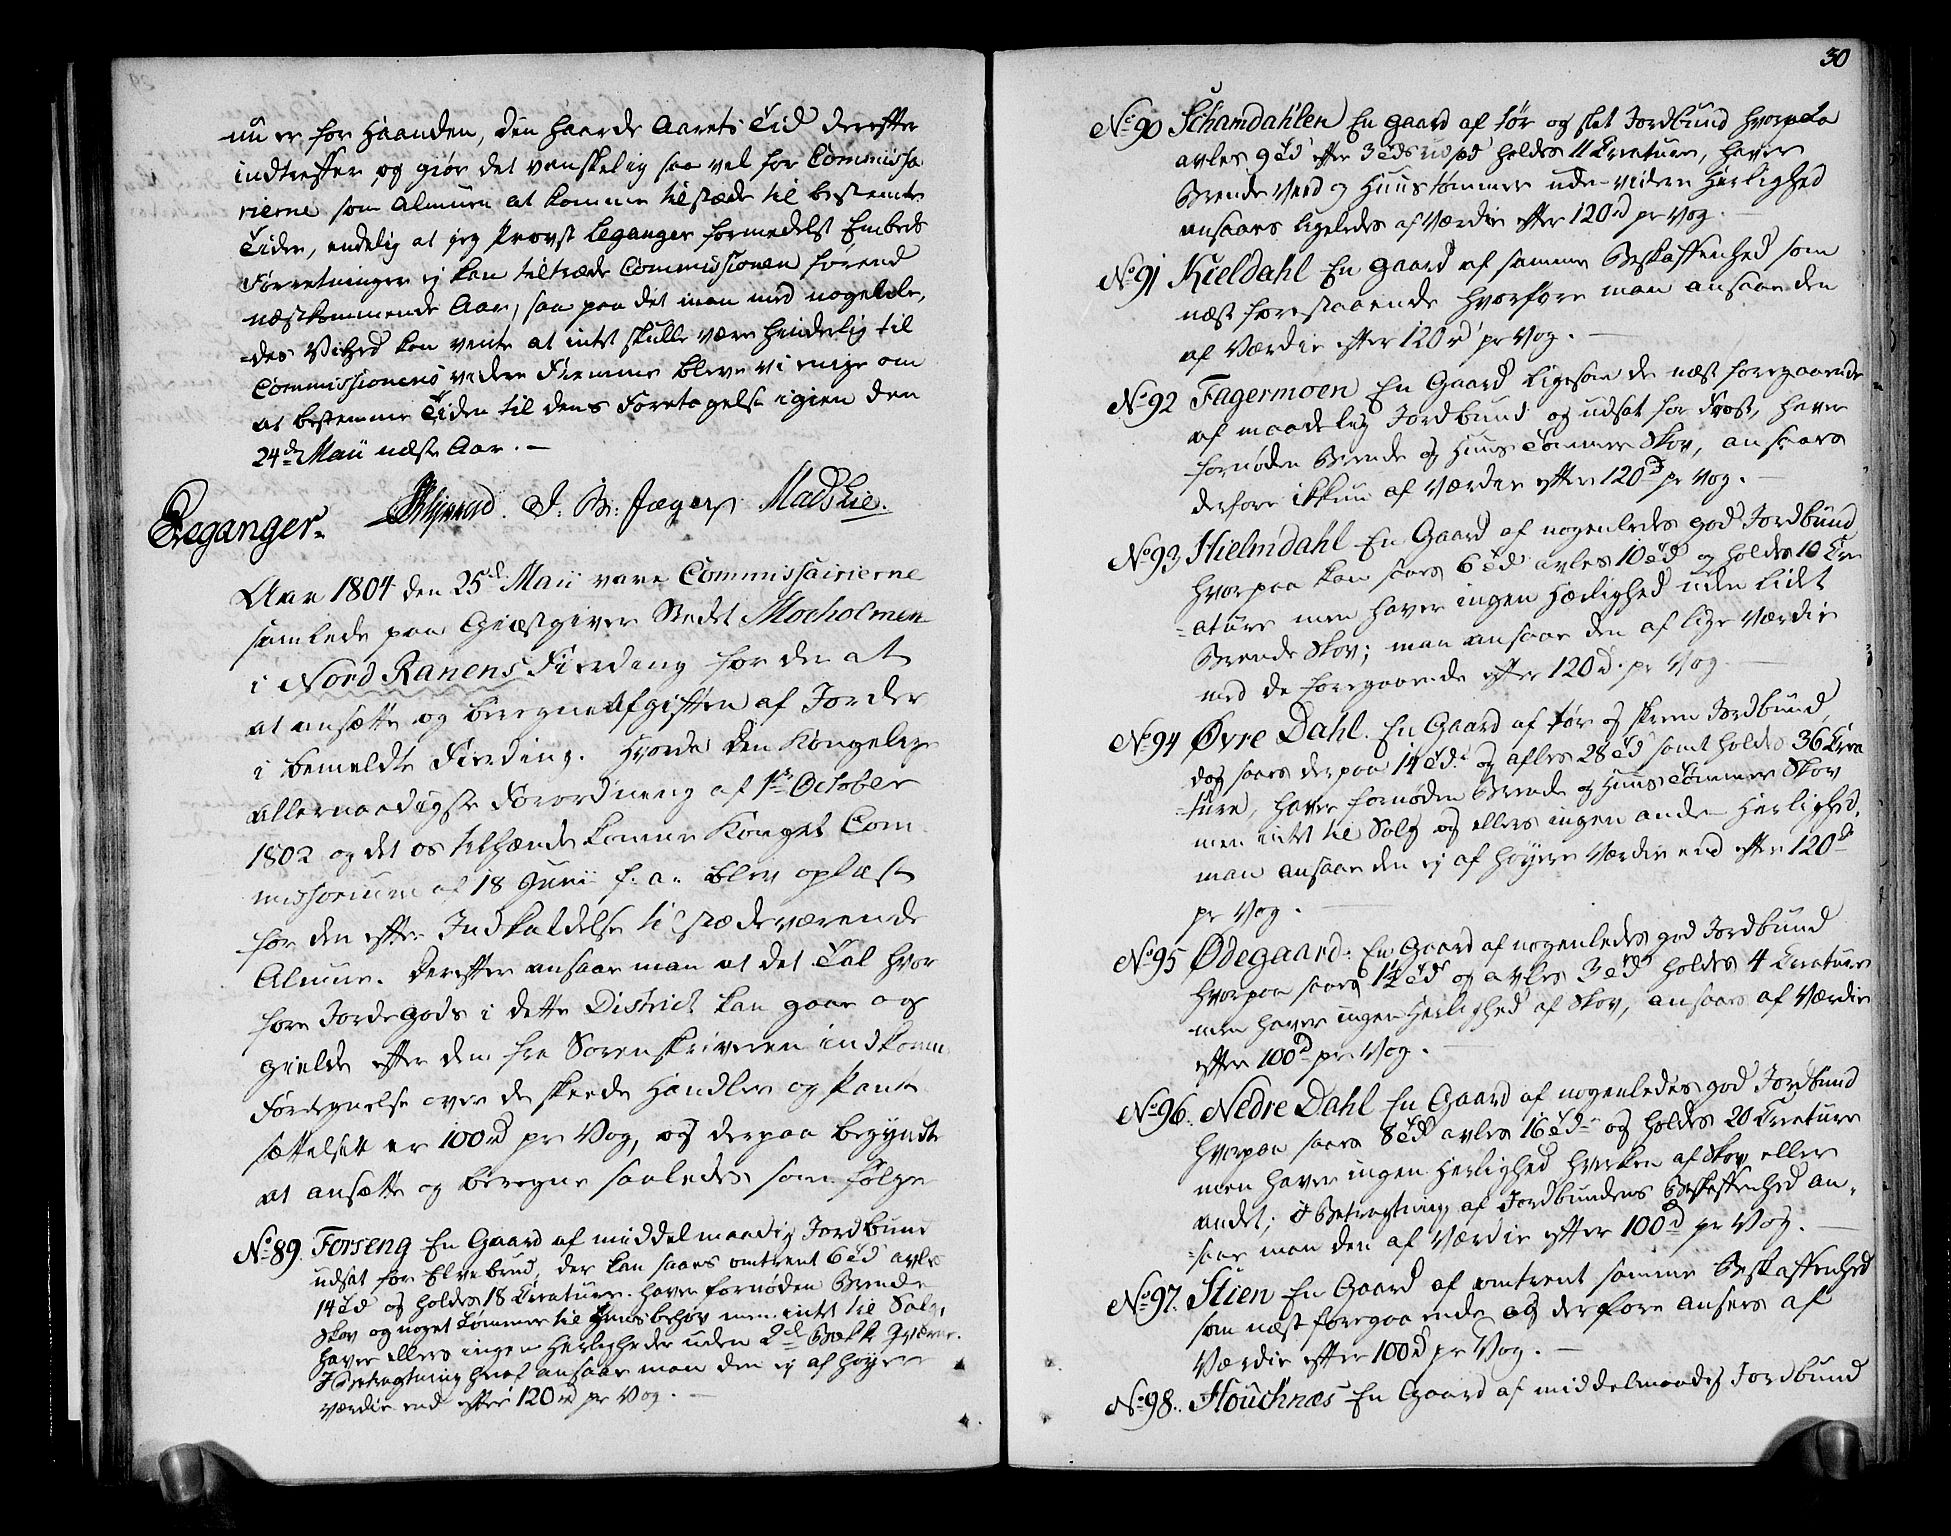 nu er for Haanden, den haarde Aarets Tid derefter
indtreffer og giør det vanskelig saa vel for Commissa
rierne som Almuen at komme tilstæde til bestemte
Tider, endelig at jeg Provst Leganger formedelst Embeds
Forretninger ej kan tiltræde Commissionen førend
næstkommende Aar, saa paa det man med nogenle,
-des Vished kan vente at intet skulle være hinderlig til
Commissionens videre Fremme bleve vi enige om
at bestemme Tiden til dens Foretagelse igien den
24de Maii næste Aar. —
Leganger. J. B. Jæger Mads Lie.
Aar 1804 den 25d Maii vare Commissairierne
samlede paa Giæstgiver Stedet Moeholmen
i Nord Ranens Fierding for der at
at ansætte og beregne Afgiften af Jorder
i bemeldte Fierding. Hvorda den Kongelige
allernaadigste Forordning af 1ste October
1802 og det os tilhænde komne Konget Com
missorium af 18 Junii f. a. blev oplæst
for den efter Indkaldelse til stædeværende
Almue. Derefter ansaae man at det Tal hvor
fore Jordegods i dette District kan gaae og
gielde efter den fra Sorenskriveren indkomne
Fortegnelse over de skeede Handler og Pant
sættelser er 100rd pr Vog, og derpaa begyndte
at ansætte og beregne saaledes som følger
No 89. Forseng En Gaard af middelmaadig Jordbund
udsat for Elvebrud, der kan saaes omtrent 6 Td avles
14 Td og holdes 18 Creature. haver fornøden Brende
Skov og noget Tømmer til Huusbehov men intet til Salg,
haver ellers ingen Herligheder uden 2d Bekke Qværne.
I Betragtning heraf ansaae man den ej af høyere
værdie end efter 120rd pr Vog. —
30
No 90 Schamdahlen En gaard af tør og slet Jordbund hvorpaa
avles 9 Td efter 3 Tds udsæd holdes 11 Creature, haver
Brende Veed og Huustømmer uden viidere Herlighed
ansaaes ligeledes af Værdie efter 120rd pr Vog. —
No 91 Kieldahl En gaard af samme Beskaffenhed som
næst forestaaende hvorfore man ansaae den
af Værdie efter 120rd pr Vog. —
No 92 Fagermoen En Gaard ligesom de næst foregaaende
af maadelig Jordbund og udsat for Frost, haver
fornøden Brende og Huus Tømmer Skov, ansaaes
derfore ikkun af Værdie efter 120rd pr Vog. —
No 93 Hielmdahl En Gaard af nogenledes god Jordbund
hvorpaa kan saaes 6 Td avles 10 Td og holdes 10 Cre
-ature men haver ingen Hærlighed uden lidet
Brende Skov; man ansaae den af lige Værdie
med de foregaaende efter 120rd. pr Vog —
No 94 Øvre Dahl. En Gaard af tør og skrin Jordbund,
dog saaes derpaa 14 Td. og afles 28 Td samt holdes 36 Crea
-ture, haver fornøden Brende og Huus Tømmer Skov
men intet til Salg og ellers ingen anden Herlighed.
man ansaae den ej af høyere Værdie end efter 120rd
pr Vog. —
No 95 Ødegaard. En Gaard af nogenledes god Jordbund
hvorpaa saaes 1½ Td og avles 3 Td holdes 4 Creature
men haver ingen Herlighed af Skov, ansaaes af Værdie
efter 100rd pr Vog. —
No 96. Nedre Dahl En Gaard af nogenledes god Jordbund
hvorpaa saaes 8 Td avles 16 Td og holdes 20 Creature
men haver ingen Herlighed hverken af Skov eller
andet; I Betragtning af Jordbundens Beskaffenhed an,
-saae man den af Værdie efter 100rd pr Vog. —
No 97. Stien En Gaard af omtrent samme Beskaffenhed
som næst foregaaende og derfore ansees af
Værdie efter 100rd pr Vog. —
No 98. Houchnæs En Gaard af middelmaadig Jordbund